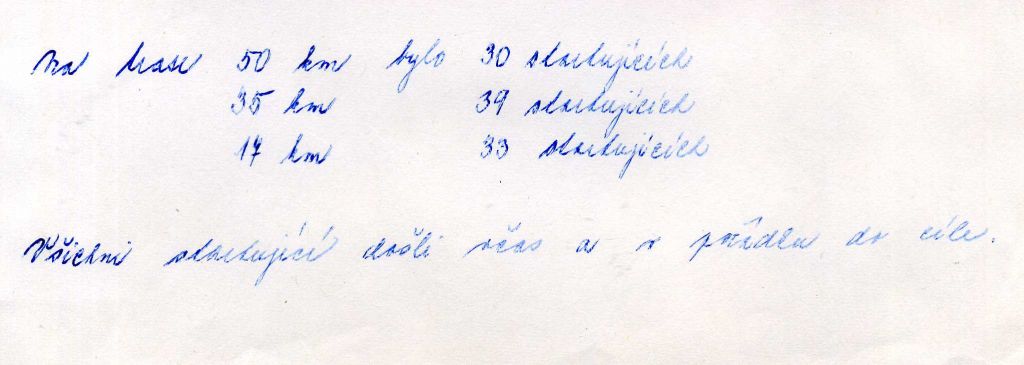 Na trase 50 km bylo 30 startujících
35 km 39 startujících
17 km 33 startujících
Všichni startující došli včas a v pořádku do cíle.